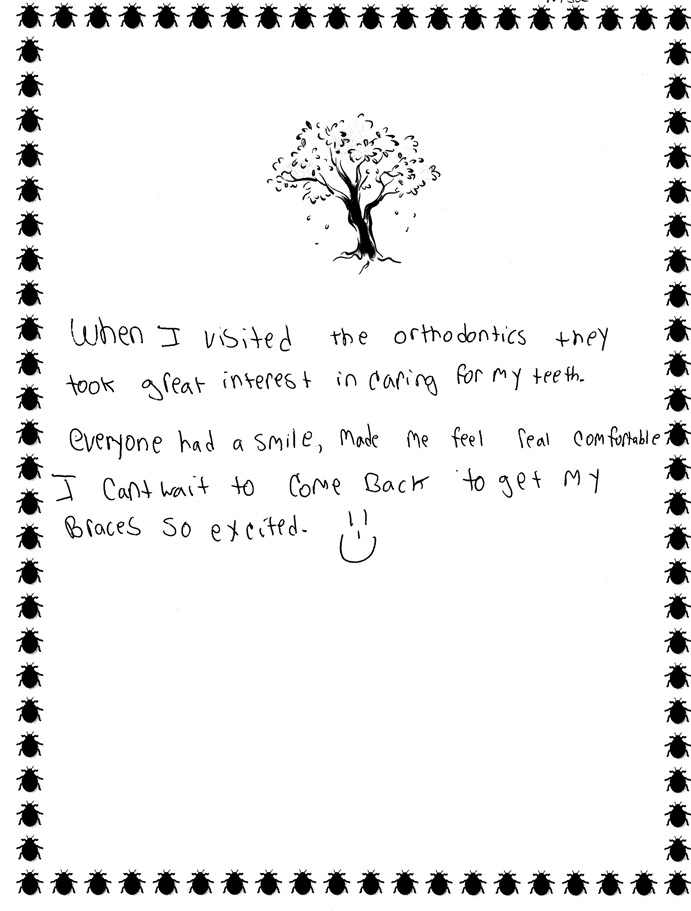 When I visited the orthodontics they
took great interest in caring for my teeth.
everyone had a smile, made me feel real comfortable
I cant wait to come Back to get my
Braces so excited.